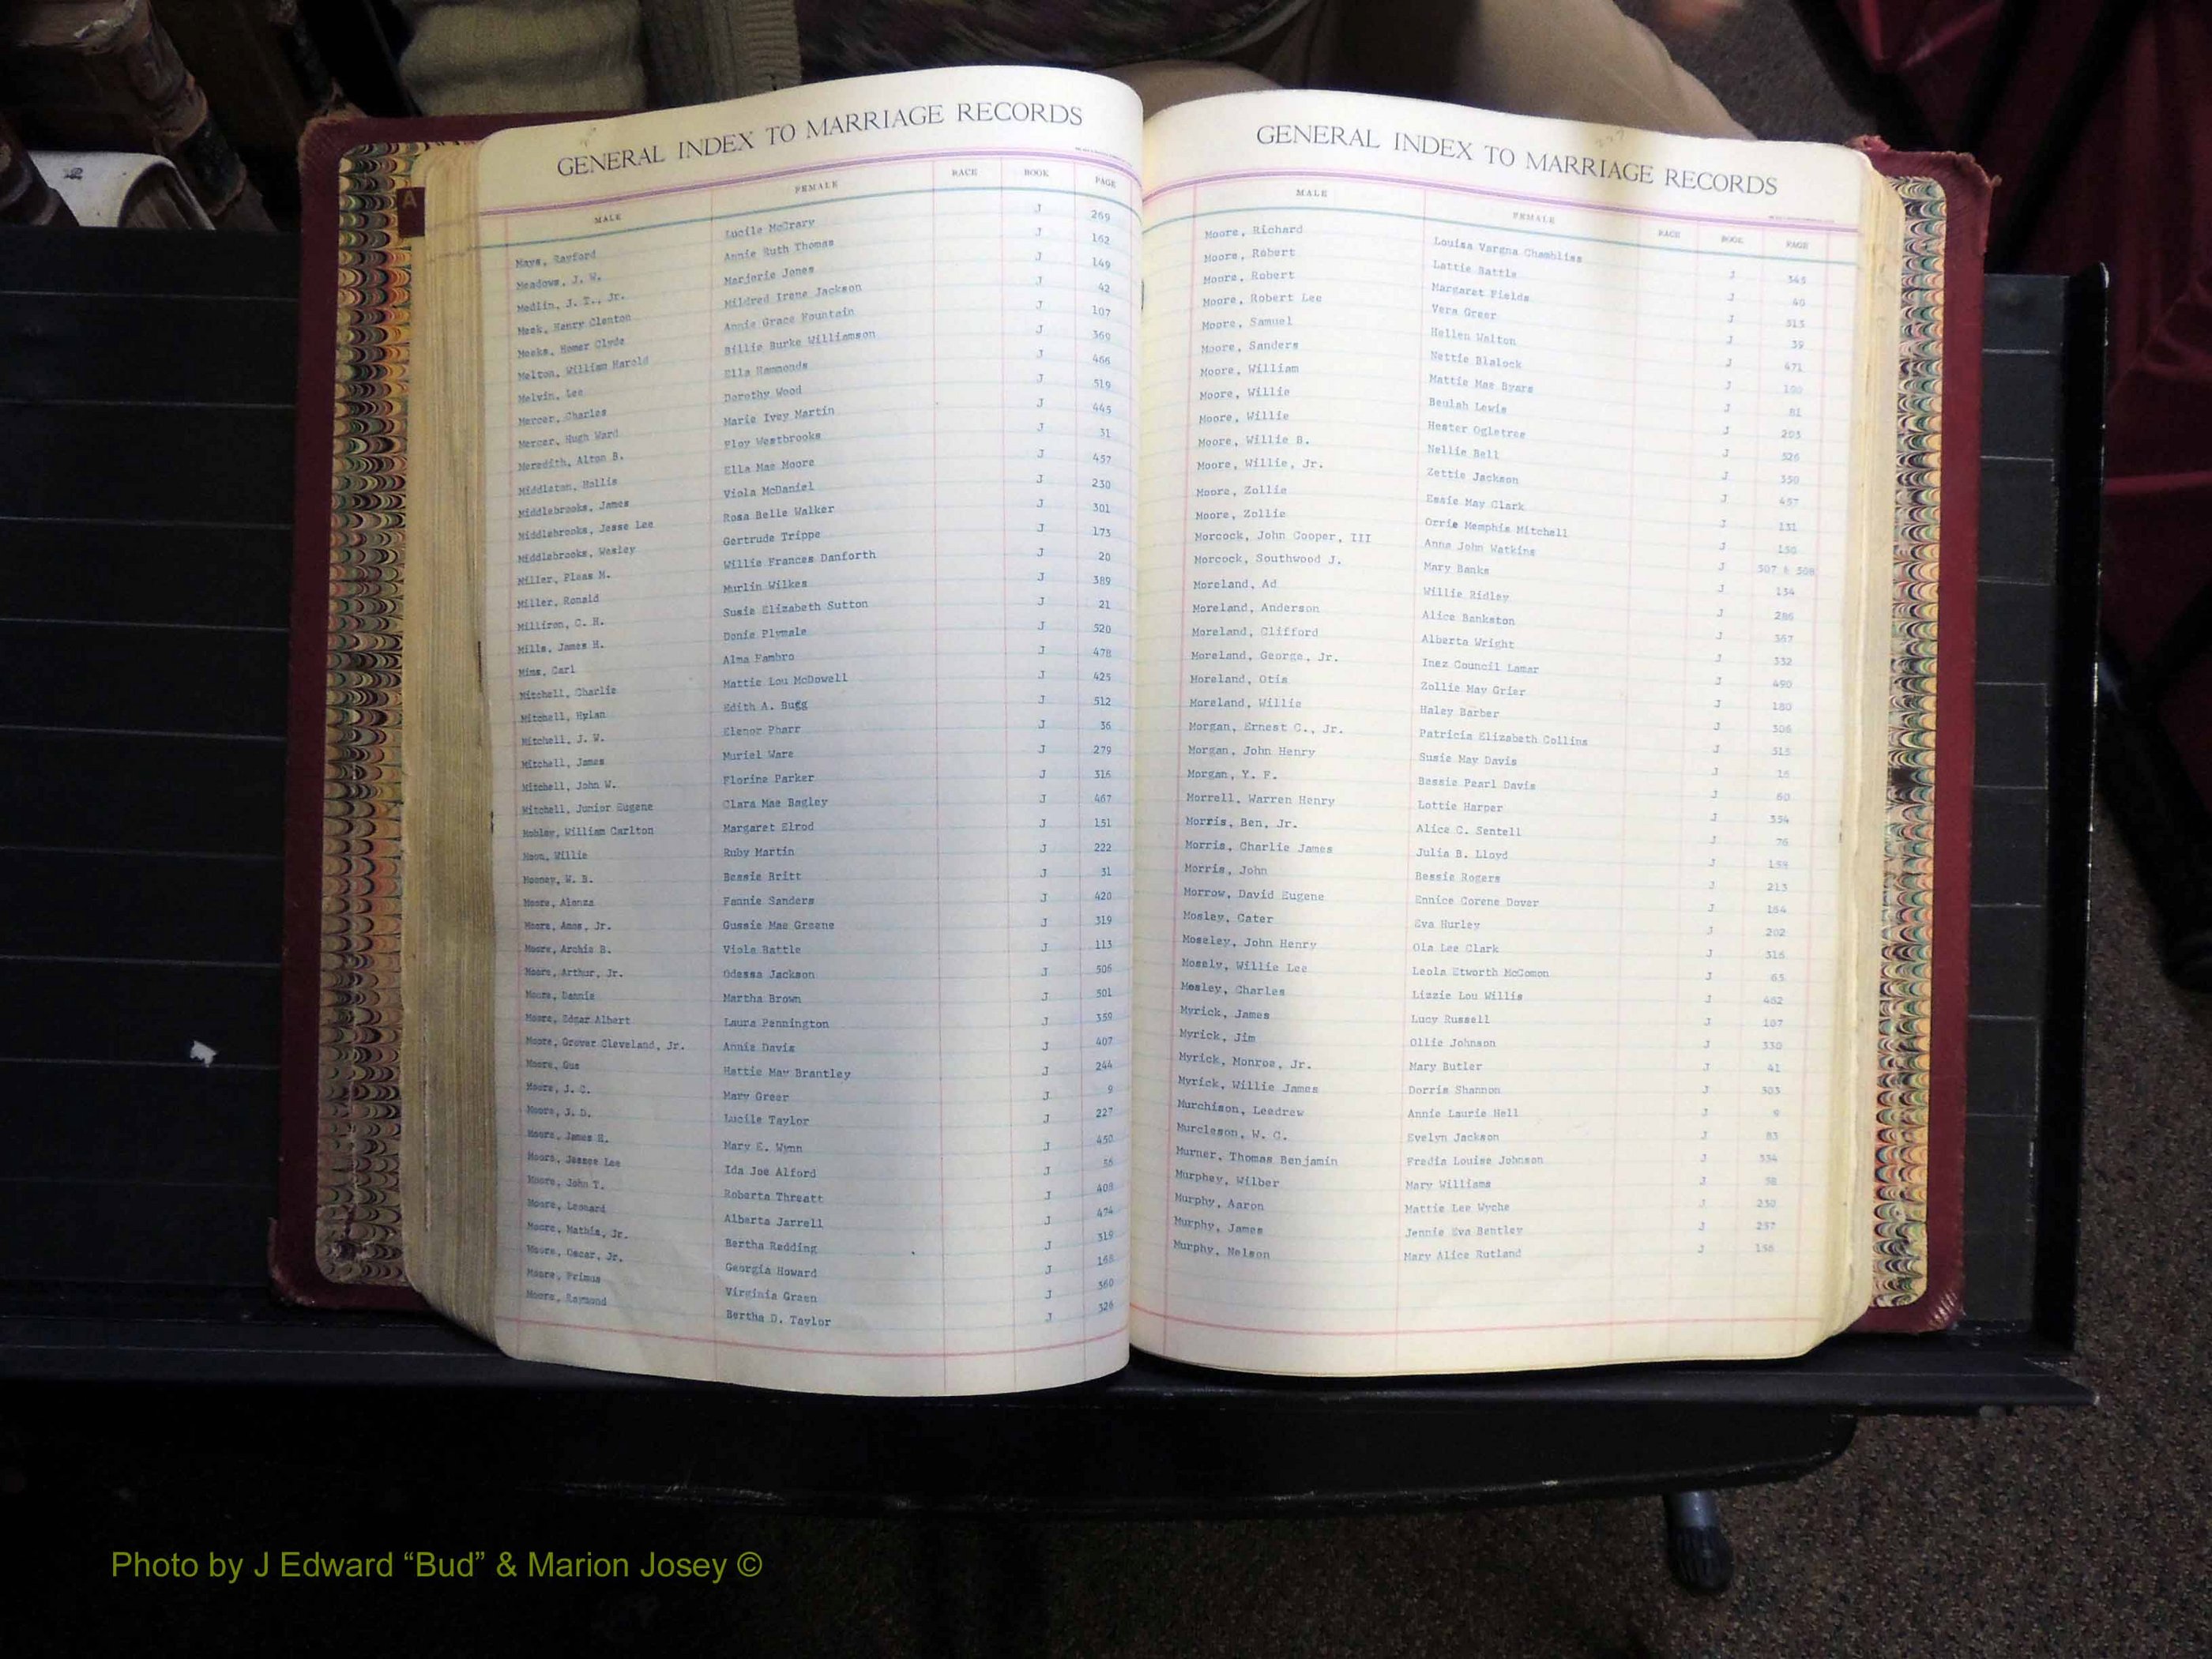 GENERAL INDEX TO MARRIAGE RECORDS
MALE FEMALE RACE BOOK PAGE
Mays, Rayford Lucile McCrary J 269
Meadows, J. W. Annie Ruth Thomas J 162
Medlin, J. T., Jr. Marjorie Jones J 149
Meek, Henry Clenton Mildred Irene Jackson J 42
Meeks, Homer Clyde Annie Grace Fountain J 107
Melton, William Harold Billie Burke Williamson J 369
Melvin, Lee Ella Hammonds J 466
Mercer, Charles Dorothy Wood J 519
Mercer, Hugh Ward Marie Ivey Martin J 445
Meredith, Alton B. Floy Westbrooks J 31
Middleton, Hollis Ella Mae Moore J 457
Middlebrooks, James Viola McDaniel J 230
Middlebrooks, Jesse Lee Rosa Belle Walker J 301
Middlebrooks, Wesley Gertrude Trippe J 173
Miller, Pleas M. Willie Frances Danforth J 20
Miller, Ronald Murlin Wilkes J 389
Milliron, C. H. Susie Elizabeth Sutton J 21
Mills, James H. Donie Plymale J 520
Mims, Carl Alma Fambro J 478
Mitchell, Charlie Mattie Lou McDowell J 425
Mitchell, Hylan Edith A. Bugg J 512
Mitchell, J. W. Elenor Pharr J 36
Mitchell, James Muriel Ware J 279
Mitchell, John W. Florine Parker J 316
Mitchell, Junior Eugene Clara Mae Bagley J 467
Mobley, William Carlton Margaret Elrod J 151
Moon, Willie Ruby Martin J 222
Mooney, W. B. Bessie Britt J 31
Moore, Alonza Fannie Sanders J 420
Moore, Amos, Jr. Gussie Mae Greene J 319
Moore, Archie B. Viola Battle J 113
Moore, Arthur, Jr. Odessa Jackson J 506
Moore, Dennis Martha Brown J 501
Moore, Edgar Albert Laura Pennington J 359
Moore, Grover Cleveland, Jr. Annie Davis J 407
Moore, Gus Hattie May Brantley J 244
Moore, J. C. Mary Greer J 9
Moore, J. D. Lucile Taylor J 227
Moore, James H. Mary E. Wynn J 450
Moore, Jessee Lee Ida Joe Alford J 56
Moore, John T. Roberta Threatt J 408
Moore, Leonard Alberta Jarrell J 474
Moore, Mathis, Jr. Bertha Redding J 319
Moore, Oscar, Jr. Georgia Howard J 168
Moore, Primus Virginia Green J 360
Moore, Raymond Bertha D. Taylor J 326
GENERAL INDEX TO MARRIAGE RECORDS
MALE FEMALE RACE BOOK PAGE
Moore, Richard Louisa Vargna Chambliss J 345
Moore, Robert Lattie Battle J 40
Moore, Robert Margaret Fields J 515
Moore, Robert Lee Vera Greer J 39
Moore, Samuel Hellen Walton J 471
Moore, Sanders Nettie Blalock J 100
Moore, William Mattie Mae Byars J 81
Moore, Willie Beulah Lewis J 203
Moore, Willie Hester Ogletree J 526
Moore, Willie B. Nellie Bell J 350
Moore, Willie, Jr. Zettie Jackson J 457
Moore, Zollie Essie May Clark J 131
Moore, Zollie Orrie Memphis Mitchell J 150
Morcock, John Cooper, III Anna John Watkins J 507 & 508
Morcock, Southwood J. Mary Banks J 134
Moreland, Ad Willie Ridley J 286
Moreland, Anderson Alice Bankston J 367
Moreland, Clifford Alberta Wright J 332
Moreland, George, Jr. Inez Council Lamar J 490
Moreland, Otis Zollie May Grier J 180
Moreland, Willie Haley Barber J 306
Morgan, Ernest C., Jr. Patricia Elizabeth Collins J 313
Morgan, John Henry Susie May Davis J 16
Morgan, Y. F. Bessie Pearl Davis J 60
Morrell, Warren Henry Lottie Harper J 354
Morris, Ben, Jr. Alice C. Sentell J 76
Morris, Charlie James Julia B. Lloyd J 159
Morris, John Bessie Rogers J 213
Morrow, David Eugene Ennice Corene Dover J 164
Mosley, Cater Eva Hurley J 202
Moseley, John Henry Ola Lee Clark J 316
Mosely, Willie Lee Leola Etworth McComon J 65
Mosley, Charles Lizzie Lou Willis J 462
Myrick, James Lucy Russell J 107
Myrick, Jim Ollie Johnson J 330
Myrick, Monroe, Jr. Mary Butler J 41
Myrick, Willie James Dorris Shannon J 503
Murchison, Leedrew Annie Laurie Hell J 9
Murcleson, W. C. Evelyn Jackson J 83
Murner, Thomas Benjamin Fredia Louise Johnson J 334
Murphey, Wilber Mary Williams J 58
Murphy, Aaron Mattie Lee Wyche J 230
Murphy, James Jennie Eva Bentley J 257
Murphy, Nelson Mary Alice Rutland J 156
A
Photo by J Edward “Bud” & Marion Josey ©